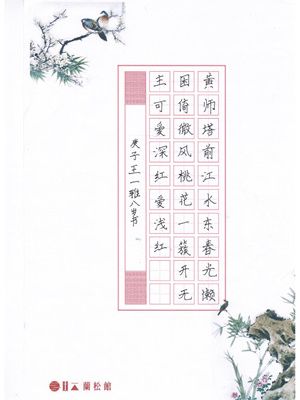 黄师塔前江水东春光懒
困倚微风桃花一簇开无
主可爱深红爱浅红
庚子王一雅八岁书
蘭松館